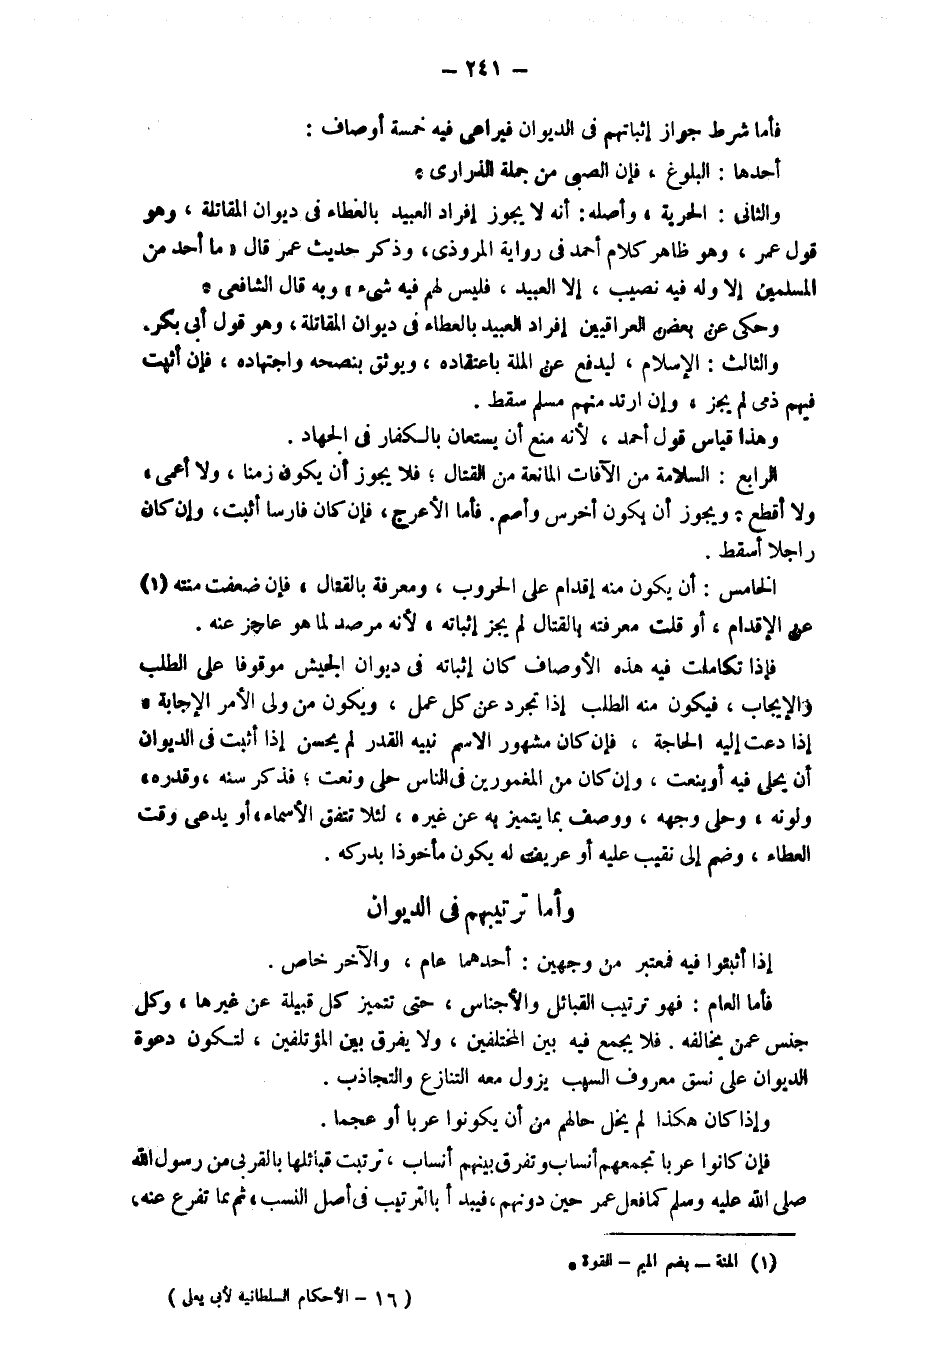 — ٢٤١ —
فأما شرط جواز إثباتهم فى الديوان فيراعى فيه خمسة أوصاف :
أحدها : البلوغ ، فإن الصبى من جملة الذرارى .
والثانى : الحرية ، وأصله : أنه لا يجوز إفراد العبيد بالعطاء فى ديوان المقاتلة ، وهو
قول عمر ، وهو ظاهر كلام أحمد فى رواية المروذى، وذكر حديث عمر قال « ما أحد من
المسلمين إلا وله فيه نصيب ، إلا العبيد ، فليس لهم فيه شىء » وبه قال الشافعى .
وحكى عن بعض العراقيين إفراد العبيد بالعطاء فى ديوان المقاتلة ، وهو قول أبى بكر.
والثالث : الإسلام ، ليدفع عن الملة باعتقاده ، ويوثق بنصحه واجتهاده ، فإن أثبت
فيهم ذمى لم يجز ، وإن ارتد منهم مسلم سقط .
وهذا قياس قول أحمد ، لأنه منع أن يستعان بالكفار فى الجهاد .
الرابع : السلامة من الآفات المانعة من القتال ؛ فلا يجوز أن يكون زمنا ، ولا أعمى ،
ولا أقطع ; ويجوز أن يكون أخرس وأصم. فأما الأعرج، فإن كان فارسا أثبت، وإن كان
راجلا أسقط .
الخامس : أن يكون منه إقدام على الحروب ، ومعرفة بالقتال ، فإن ضعفت منته (١)
عن الإقدام ، أو قلت معرفته بالقتال لم يجز إثباته ، لأنه مرصد لما هو عاجز عنه .
فإذا تكاملت فيه هذه الأوصاف كان إثباته فى ديوان الجيش موقوفا على الطلب
والإيجاب ، فيكون منه الطلب إذا تجرد عن كل عمل ، ويكون من ولى الأمر الإجابة .
إذا دعت إليه الحاجة ، فإن كان مشهور الاسم نبيه القدر لم يحسن إذا أثبت فى الديوان
أن يحلى فيه أوينعت ، وإن كان من المغمورين فى الناس حلى ونعت ؛ فذكر سنه ،وقدره،
ولونه ، وحلى وجهه ، ووصف بما يتميز به عن غيره ، لئلا تتفق الأسماء، أو يدعى وقت
العطاء ، وضم إلى نقيب عليه أو عريف له يكون مأخوذا بدركه .
وأما ترتيبهم فى الديوان
إذا أثبتوا فيه فمعتبر من وجهين : أحدهما عام ، والآخر خاص .
فأما العام : فهو ترتيب القبائل والأجناس ، حتى تتميز كل قبيلة عن غيرها ، وكل
جنس عمن يخالفه . فلا يجمع فيه بين المختلفين ، ولا يفرق بين المؤتلفين ، لتكون دعوة
الديوان على نسق معروف السبب يزول معه التنازع والتجاذب .
وإذا كان هكذا لم يخل حالهم من أن يكونوا عربا أو عجما .
فإن كانوا عربا تجمعهم أنساب وتفرق بينهم أنساب ، ترتبت قبائلها بالقربى من رسول الله
صلى الله عليه وسلم كما فعل عمر حين دونهم ، فيبدأ بالترتيب فى أصل النسب، ثم بما تفرع عنه،
(١) المنة — بضم الميم — القوة .
( ١٦ - الأحكام السلطانية لأبى يعلى )